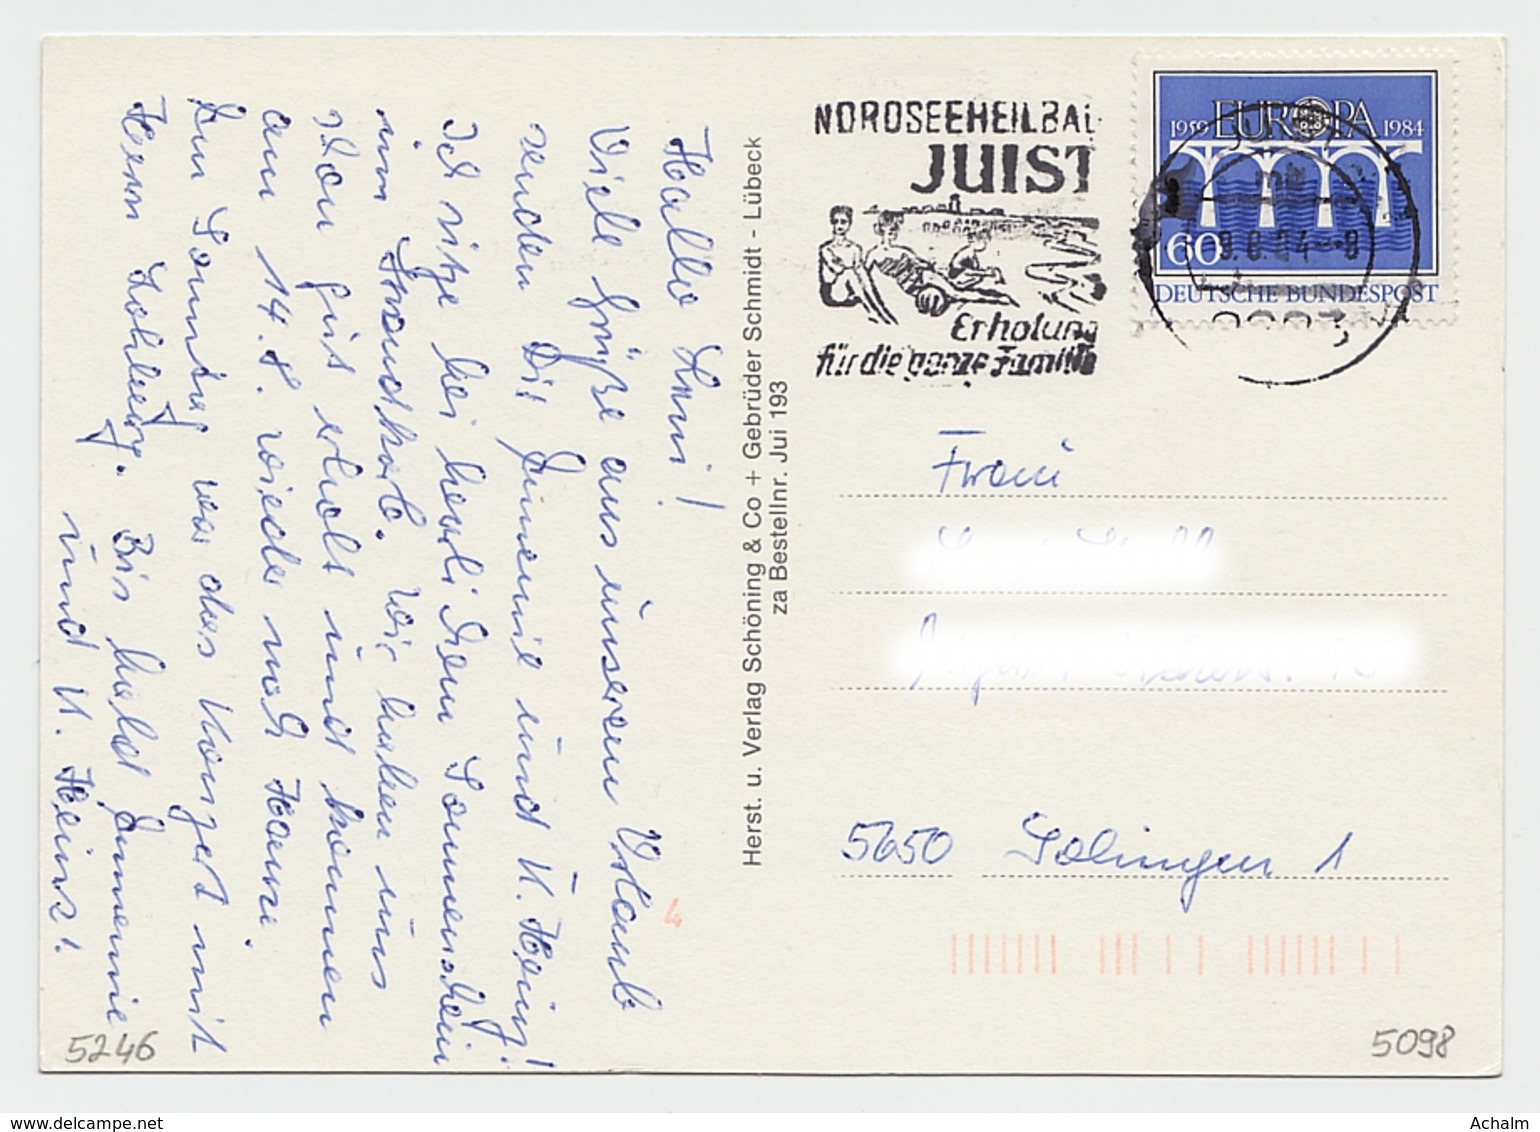 Hallo Leni!
Viele Grüße aus unserem Urlaub
senden Dir Annemie und K. Heinz!
Ich sitze bei herrlichem Sonnenschein
im Strandkorb. Wir haben uns
schon gut erholt und kommen
am 14. 8. wieder nach Hause.
Am Sonntag war das Konzert mit
Herrn . Bis bald Annemie
und K. Heinz!
Herst. u. Verlag Schöning & Co + Gebrüder Schmidt - Lübeck
za Bestellnr. Jui 193
NORDSEEHEILBAD
JUIST
Erholung
für die ganze Familie
1959 EUROPA 1984
60
DEUTSCHE BUNDESPOST
9.8.84--8
Frau
5650 Solingen 1
4
5246
5098
www.delcampe.net
Achalm